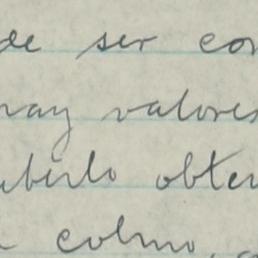 de ser con
hay valores
uberlo obten
colmo,